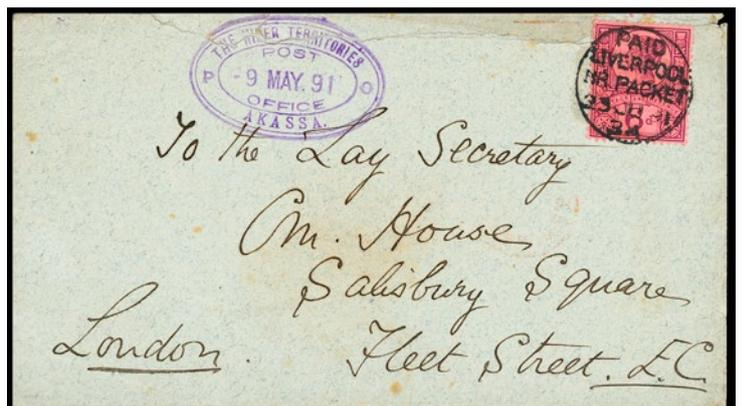 THE NIGER TERRITORIES
POST
P -9 MAY.91 O
OFFICE
AKASSA.
PAID
LIVERPOOL
BR. PACKET
To the Lay Secretary
Cm. House
Salisbury Square
Fleet Street. E.C.
London.